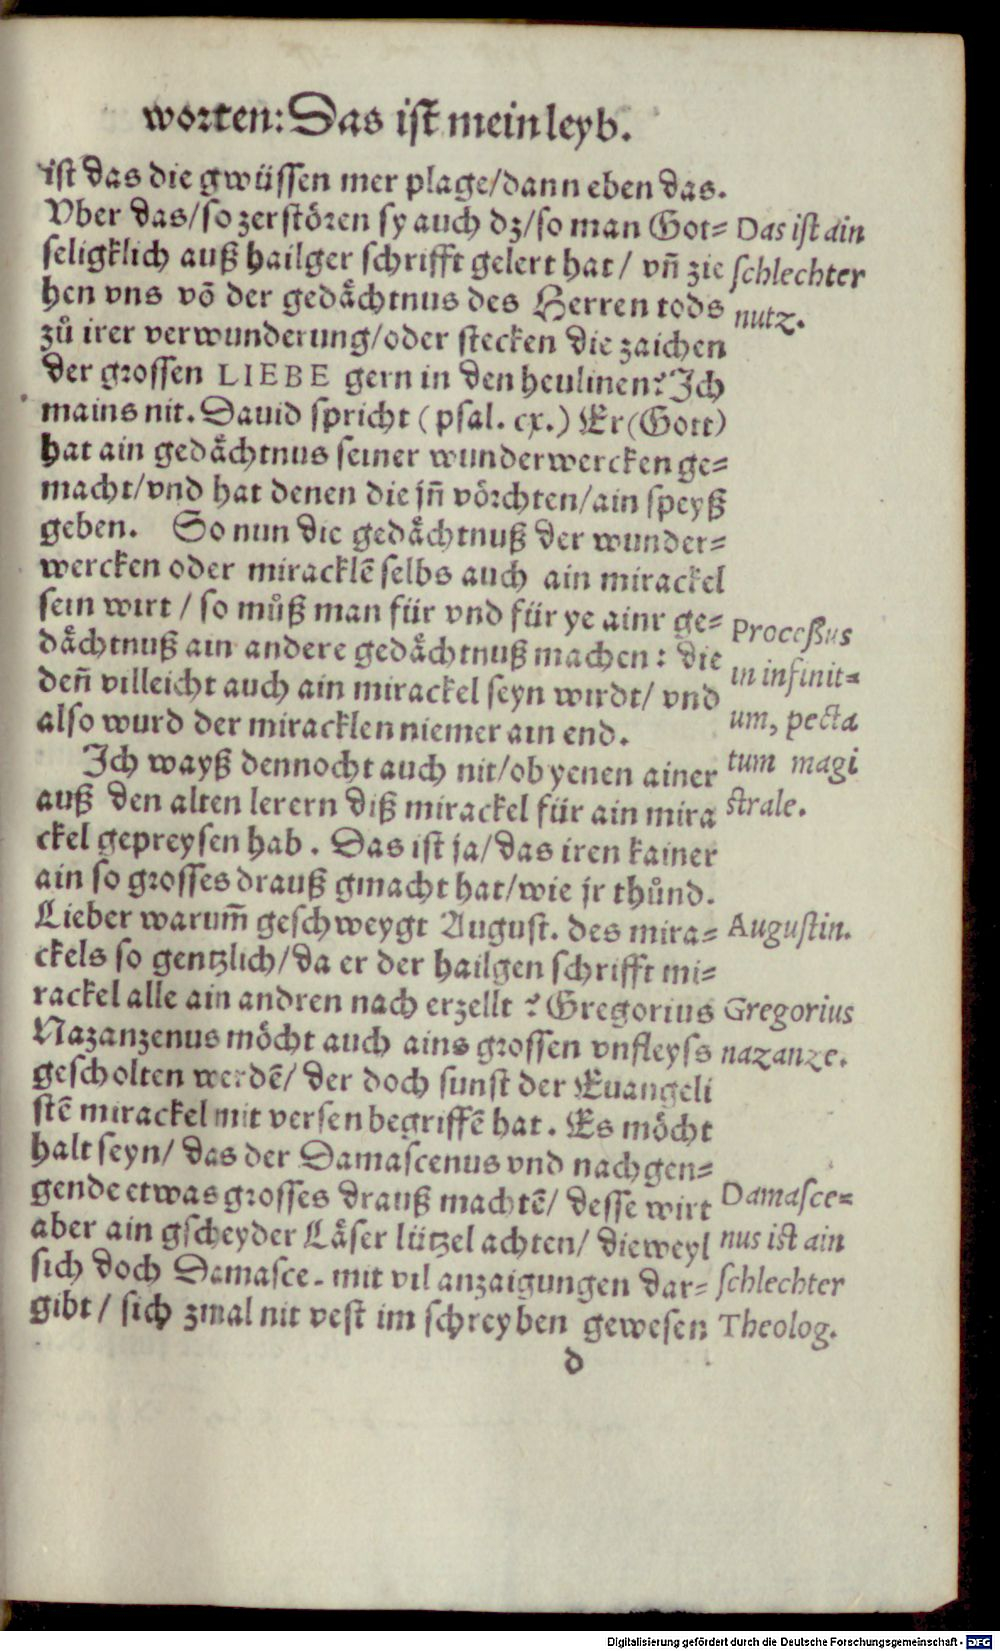 worten: Das ist mein leyb.
ist das die gwüssen mer plage/dann eben das.
Vber das/so zerstören sy auch dz/so man Got=
seligklich auß hailger schrifft gelert hat/ vñ zie
hen vns võ der gedächtnus des Herren tods
zů irer verwunderung/oder stecken die zaichen
der grossen LIEBE gern in den heulinen? Ich
mains nit. Dauid spricht (psal. cx.) Er (Gott)
hat ain gedächtnus seiner wunderwercken ge=
macht/vnd hat denen die jñ vörchten/ain speyß
geben. So nun die gedächtnuß der wunder=
wercken oder miracklẽ selbs auch ain mirackel
sein wirt / so můß man für vnd für ye ainr ge=
dächtnuß ain andere gedächtnuß machen: die
deñ villeicht auch ain mirackel seyn wirdt/ vnd
also wurd der miracklen niemer ain end.
Ich wayß dennocht auch nit/ob yenen ainer
auß den alten lerern diß mirackel für ain mira
ckel gepreysen hab. Das ist ja/das iren kainer
ain so grosses drauß gmacht hat/wie jr thůnd.
Lieber warum̃ geschweygt August. des mira=
ckels so gentzlich/da er der hailgen schrifft mi=
rackel alle ain andren nach erzellt? Gregorius
Nazanzenus möcht auch ains grossen vnfleyss
gescholten werdẽ/ der doch sunst der Euangeli
stẽ mirackel mit versen begriffẽ hat. Es möcht
halt seyn/ das der Damascenus vnd nachgen=
gende etwas grosses drauß machtẽ/ desse wirt
aber ain gscheyder Läser lützel achten/ dieweyl
sich doch Damasce. mit vil anzaigungen dar=
gibt/ sich zmal nit vest im schreyben gewesen
d
Das ist ain
schlechter
nutz.
Proceßus
in infinit=
um, pecta
tum magi
strale.
Augustin.
Gregorius
nazanze.
Damasce=
nus ist ain
schlechter
Theolog.
Digitalisierung gefördert durch die Deutsche Forschungsgemeinschaft - DFG